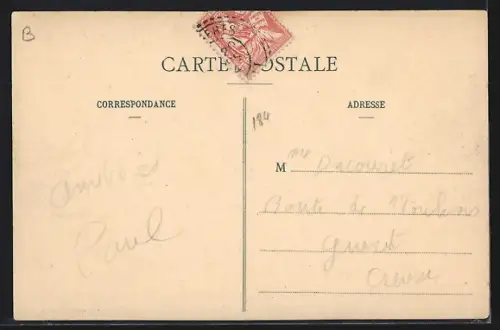 B
CARTE POSTALE
CORRESPONDANCE
ADRESSE
184
Amitiés
Paul
M me
Route de Moulins
Guéret
Creuse